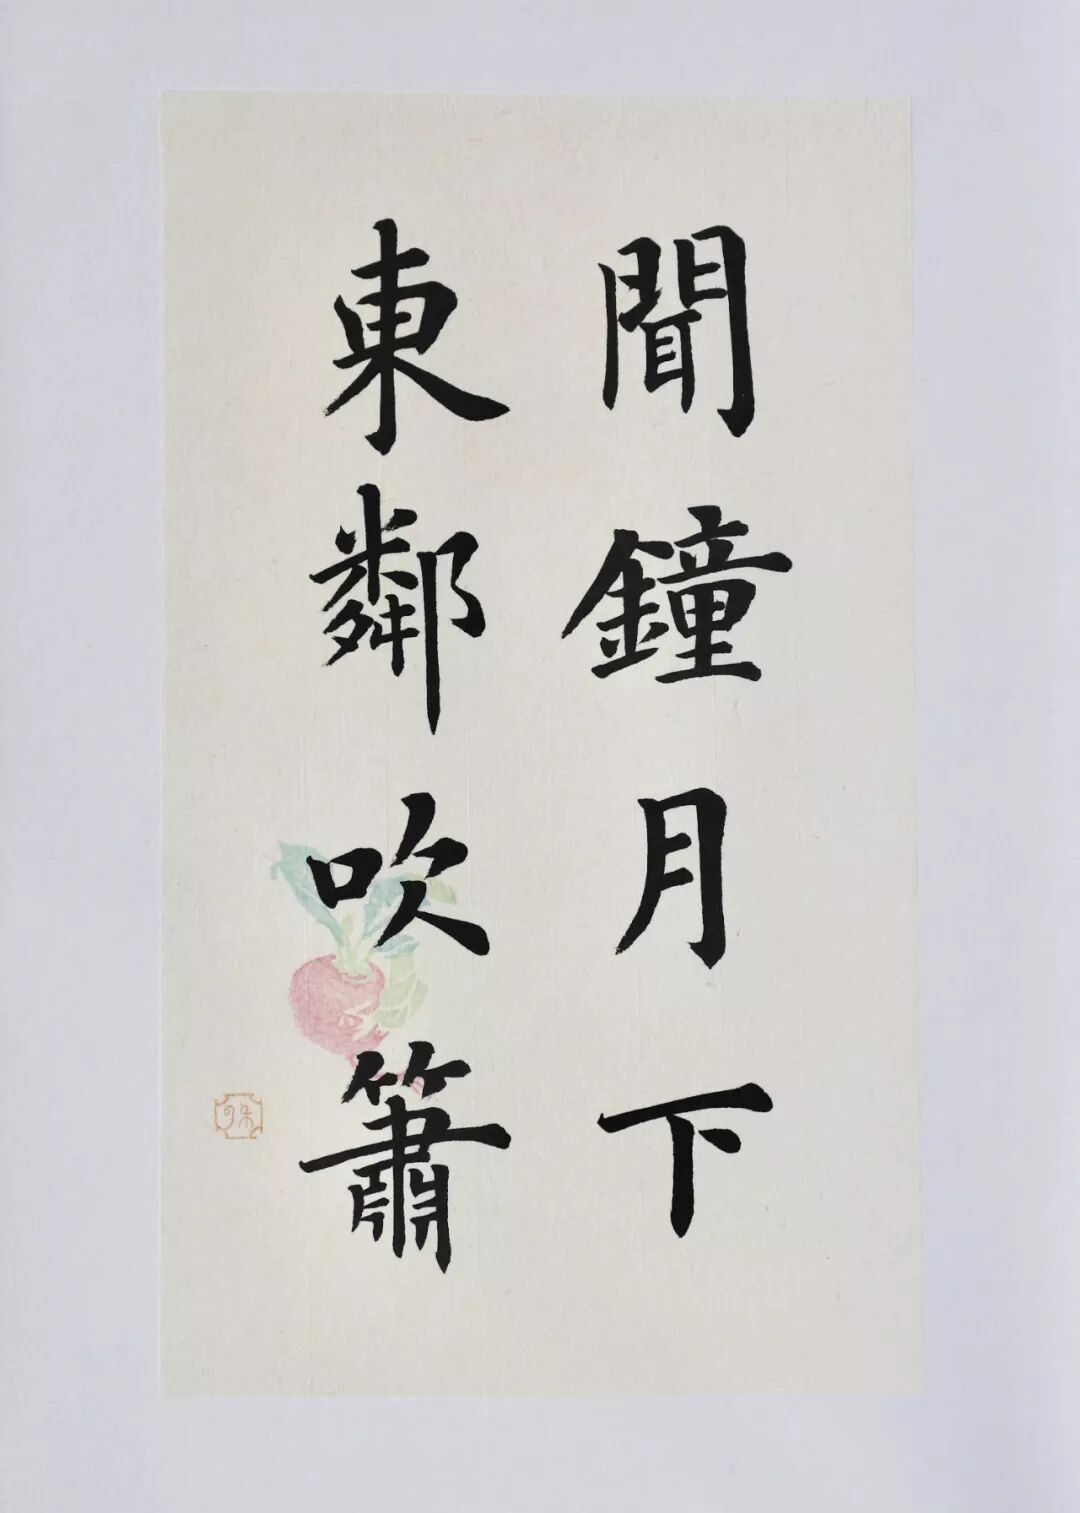 聞鐘月下
東鄰吹簫